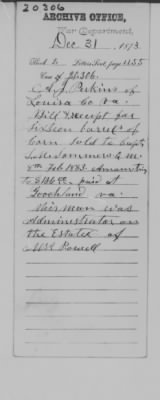 20306
ARCHIVE OFFICE,
War Department,
Dec 31 1873.
Book 2 Letters Sent, page 1155
Case of 20306.
C. A. J. Perkins of
Louisa Co Va.
Bill & receipt for
sixteen barrels of
Corn sold to Capt
Summers Q M
Feb 1863 amounting
to paid at
Goochland Va.
This man was
Administrator on
the Estate of
Mrs Powell